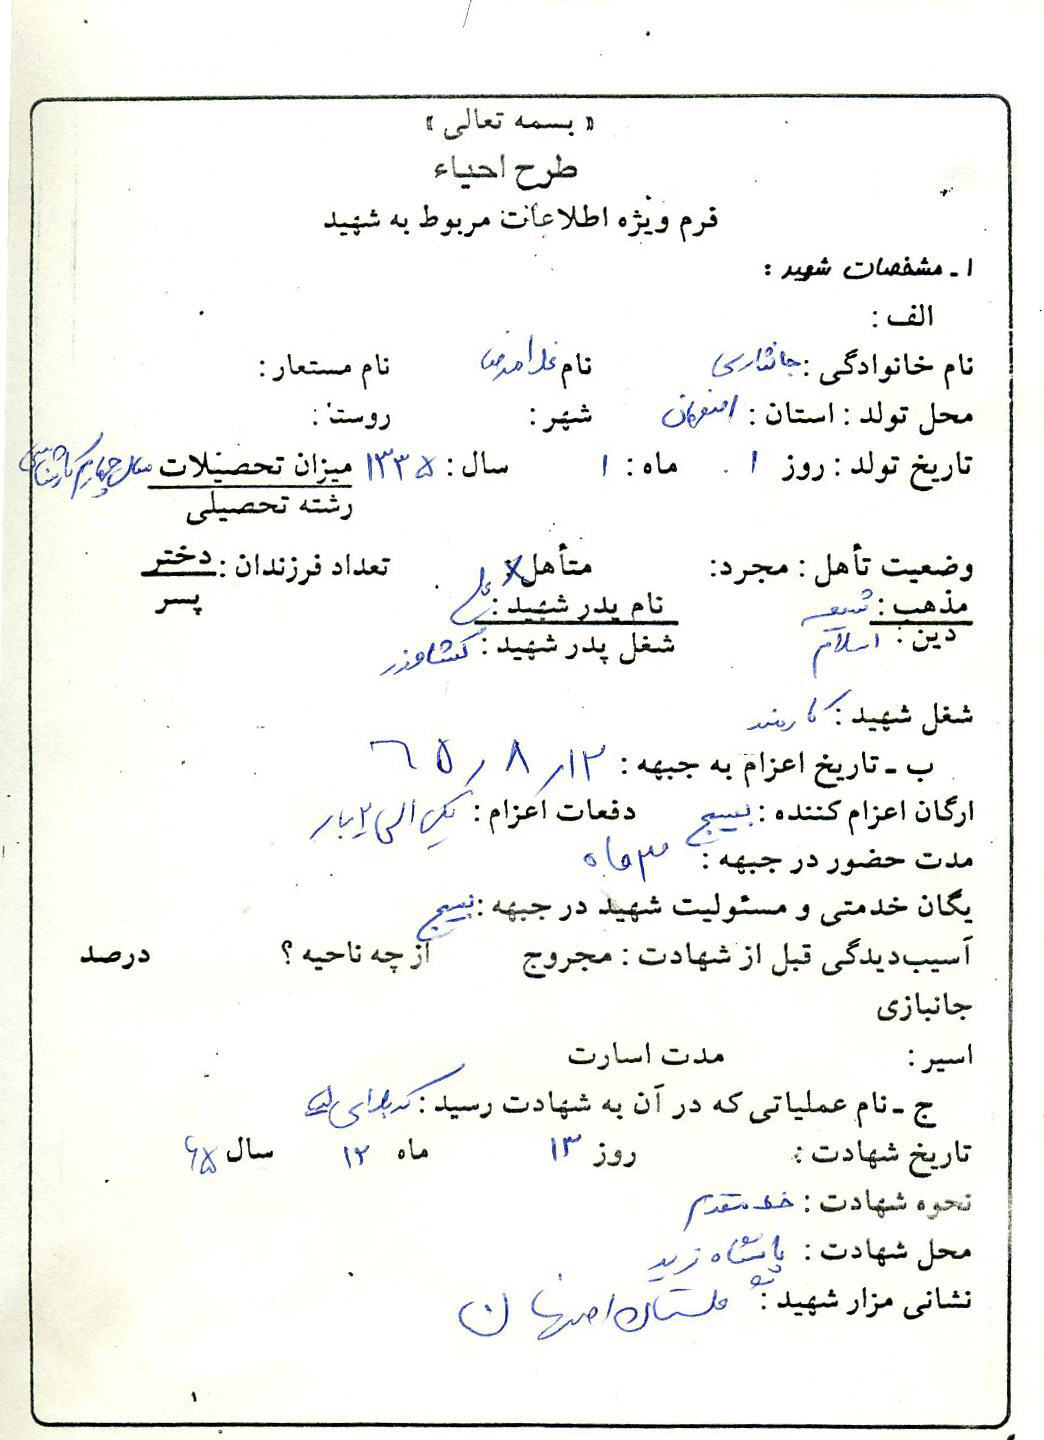 « بسمه تعالی »
طرح احیاء
فرم ویژه اطلاعات مربوط به شهید
۱ ـ مشخصات شهید :
الف :
نام خانوادگی : جانثاری نام غلامرضا نام مستعار :
محل تولد : استان : اصفهان شهر : روستا :
تاریخ تولد : روز ۱ ماه : ۱ سال : ۱۳۳۵ میزان تحصیلات سال چهارم کارشناسی
رشته تحصیلی
وضعیت تأهل : مجرد: متأهل: X تعداد فرزندان : دختر
پسر
مذهب : شیعه نام پدر شهید :
دین : اسلام شغل پدر شهید : کشاورز
شغل شهید : کارمند
ب ـ تاریخ اعزام به جبهه : ۱۲ / ۸ / ۶۵
ارگان اعزام کننده : بسیج دفعات اعزام : یک الی ۲ بار
مدت حضور در جبهه : ۳ ماه
یگان خدمتی و مسئولیت شهید در جبهه : بسیج
آسیب‌دیدگی قبل از شهادت : مجروح از چه ناحیه ؟ درصد
جانبازی
اسیر : مدت اسارت
ج ـ نام عملیاتی که در آن به شهادت رسید : کربلای ۵
تاریخ شهادت : روز ۱۳ ماه ۱۲ سال ۶۵
نحوه شهادت : خط مقدم
محل شهادت : پاسگاه زید
نشانی مزار شهید : گلستان اصفهان
۱